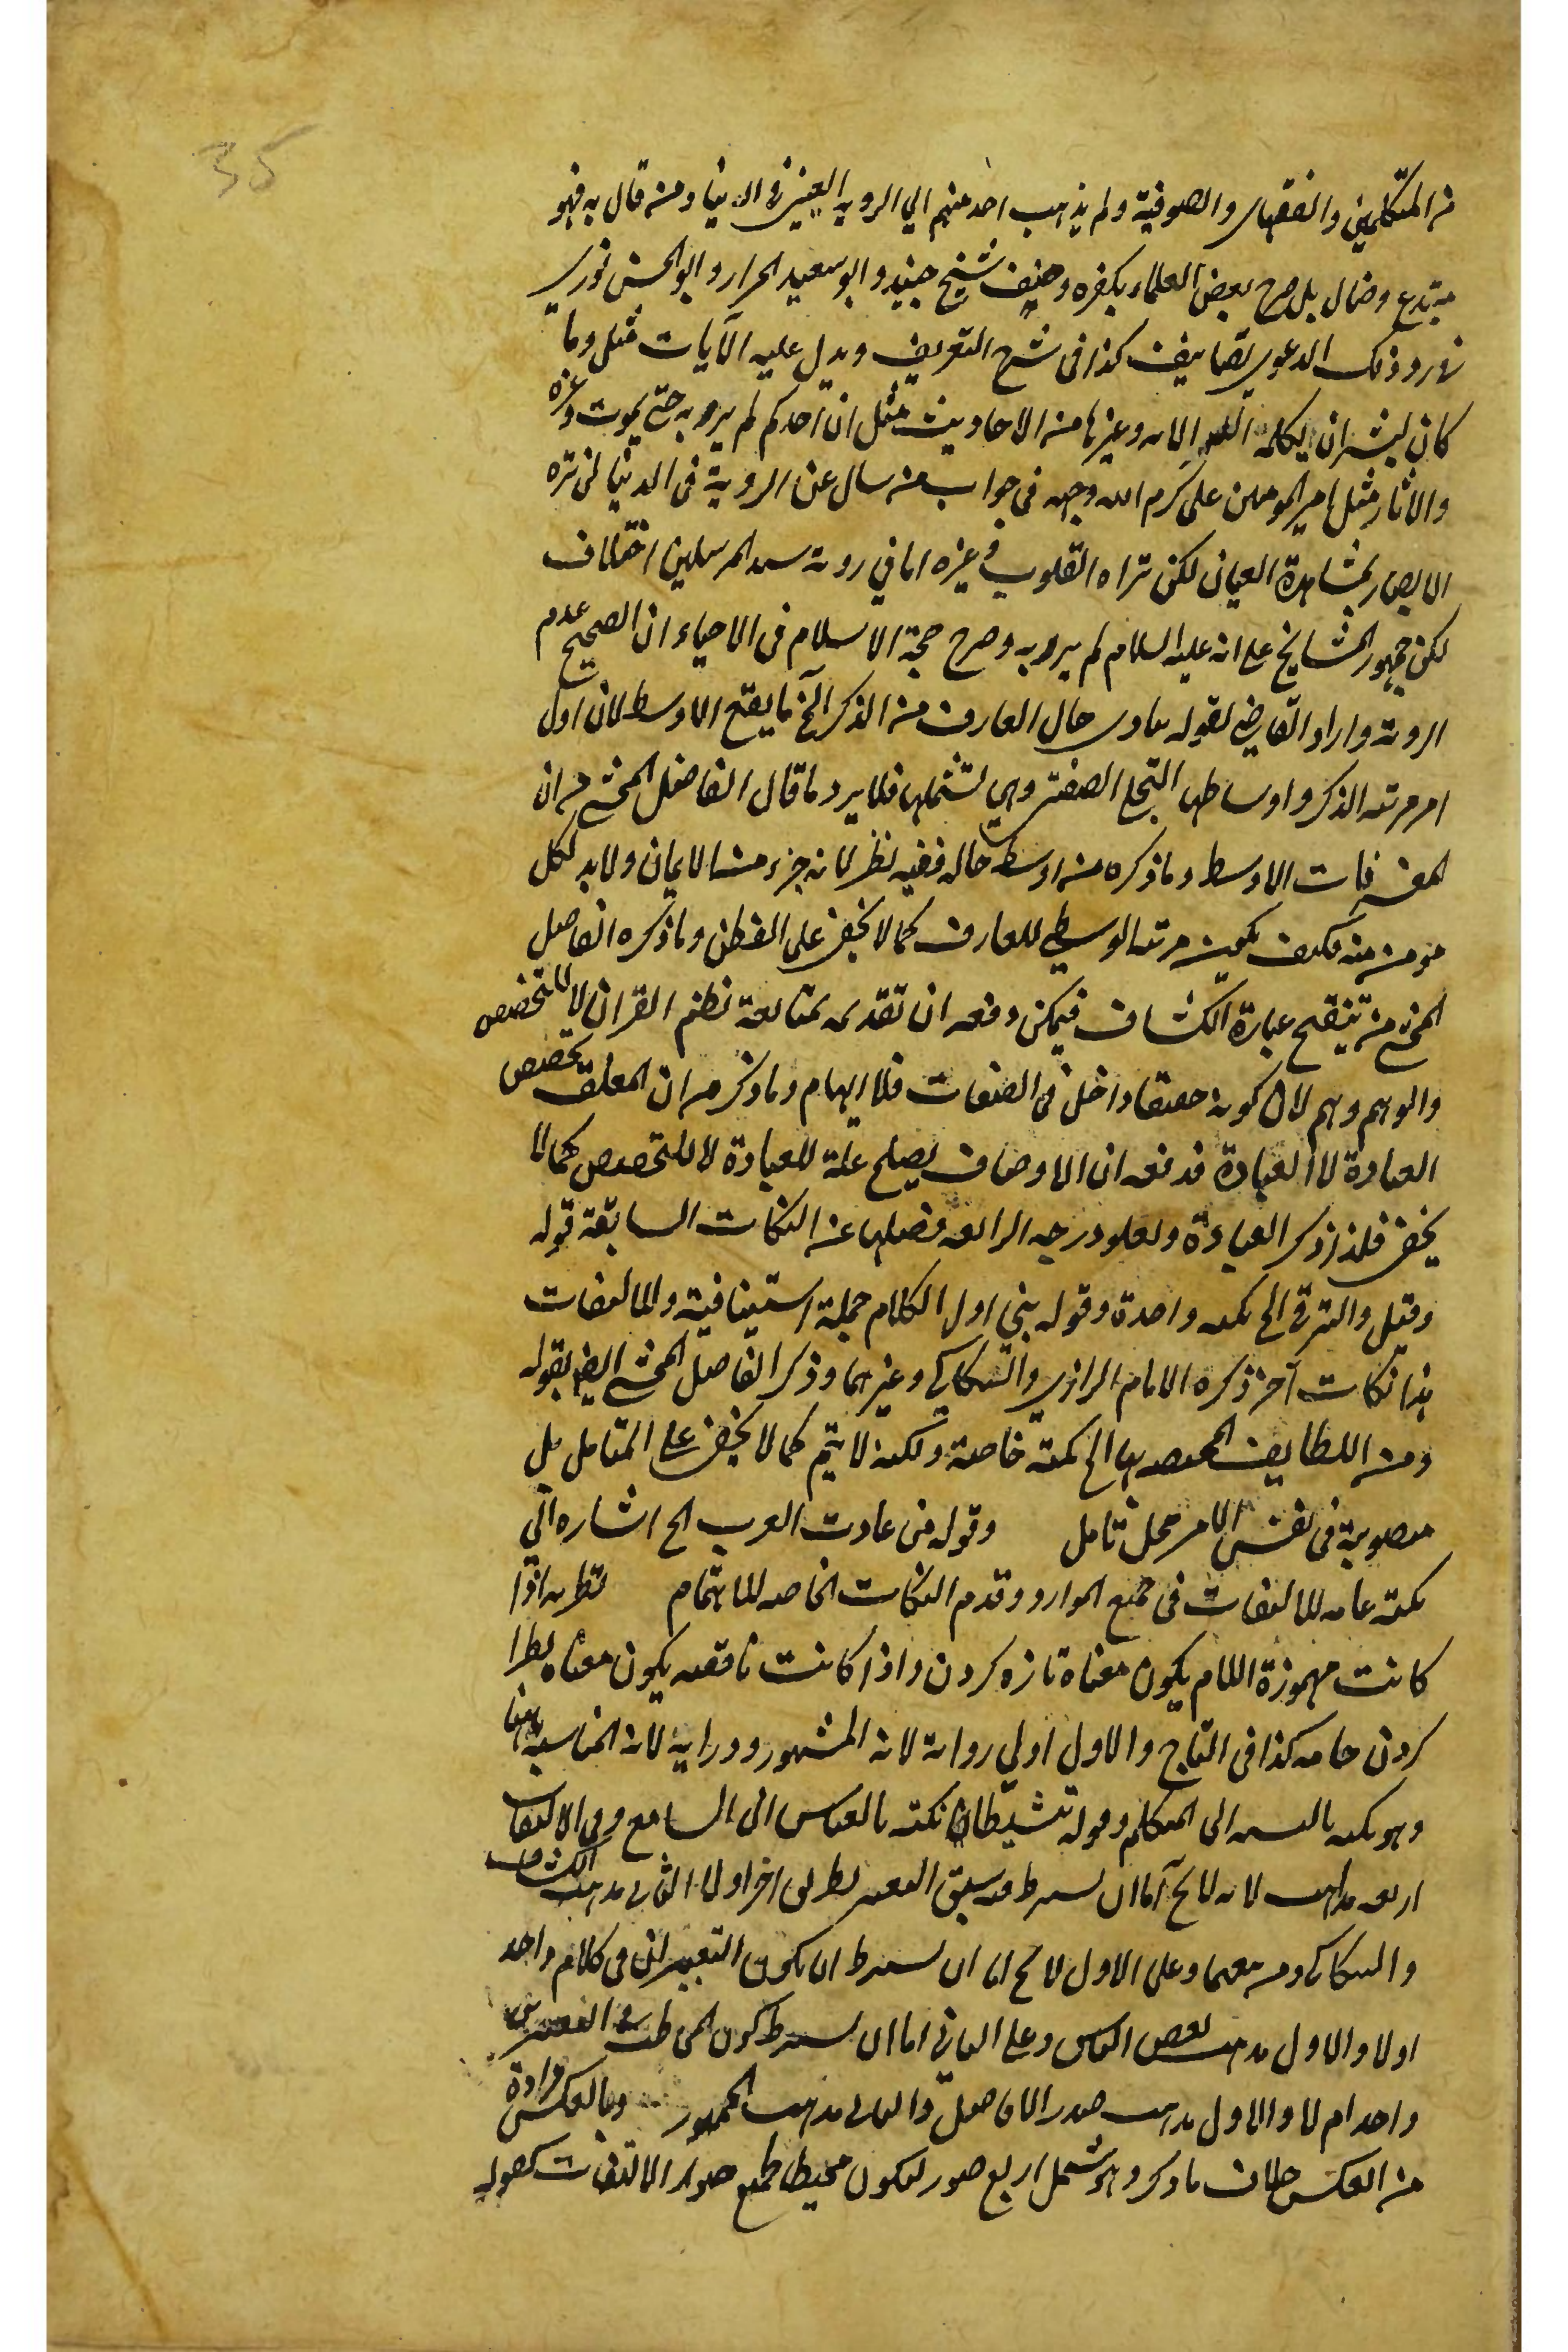 35
من المتكلمين والفقهاء والصوفية ولم يذهب احد منهم الي الروية العين في الدنيا ومن قال به فهو
مبتدع وضال بل صرح بعض العلماء بكفره وصنف شيخ جنيد وابو سعيد الخراز وابو الحسن نوري
في رد ذلك الدعوي تصانيف كذا في شرح التعريف ويدل عليه الآيات مثل وما
كان لبشر ان يكلمه الله الا وغيرها من الاحاديث مثل ان احدكم لم ير ربه حتي يموت وغيره
والاثار مثل امير المومنين علي كرم الله وجهه في جواب من سال عن الروية في الدنيا لن تره
الابصار بمشاهدة العيان لكن تراه القلوب وغيره اما في روية سيد المرسلين اختلاف
لكن جمهور المشايخ علي انه عليه السلام لم ير ربه وصرح حجة الاسلام في الاحياء ان الصحيح عدم
الروية واراد القاضي بقوله مبادي حال العارف من الذكر الخ ما يقع الاوسط لان اول
امر مرتبة الذكر واوساطها التجلي الصفتي وهي تشملها فلا يرد ما قال الفاضل المحشي من ان
فات الاوسط وما ذكره من اوسط حاله ففيه نظر لانه جزء من الايمان ولابد لكل
مومن منه فكيف يكون مرتبة الوسطي للعارف كما لا يخفي علي الفطن وما ذكره الفاضل
المحشي من تنقيح عبارة الكشاف فيمكن دفعه ان تقديمه بمتابعة نظم القران لا للتخصيص
والوهم وهم لان كونه حقيقا داخل في الصفات فلا ايهام وما ذكر من ان المعلق تخصيص
العبادة لا العبادة فدفعه ان الاوصاف يصلح علة للعبادة لا للتخصيص كما لا
يخفي فلذا ذكر العبادة ولعلو درجه الرابعة فصلها عن النكات السابقة قوله
وقيل والترقي الخ نكتة واحدة وقوله بني اول الكلام جملة استينافية وللالتفات
هذا نكات آخر ذكره الامام الرازي والسكاكي وغيرهما وذكر الفاضل المحشي ايضا بقوله
ومن اللطايف المختصة بها الخ نكتة خاصة ولكنه لا يتم كما لا يخفي علي المتامل بل
في نفس الامر محل تامل وقوله من عادت العرب الخ اشاره الي
نكتة عامه للالتفات في جميع الموارد وقدم النكات الخاصه للاهتمام تطرية اذا
كانت مهموزة اللام يكون معناه تازه كردن واذا كانت ناقصه يكون معناه نطرا
كردن جامه كذا في التاج والاول اولي رواية لانه المشهور ودراية لانه المناسب ههنا
وهو نكتة بالنسبة الي المتكلم وقوله تنشيطا نكتة بالقياس الي السامع وفي الالتفات
اربعه مذاهب لانه لا يخ اما ان يشترط فيه سبق التعبير بطريق اخر او لا الثاني مذهب الكشاف
والسكاكي ومن تبعهما وعلي الاول لا يخ اما ان يشترط ان يكون التعبيران في كلام واحد
اولا والاول مذهب بعض الناس وعلي الثاني اما ان يشترط كون المخاطب في التعبيرين
واحدا ام لا والاول مذهب صدر الافاضل والثاني مذهب الجمهور وبالعكس مراده
من العكس خلاف ما ذكر وهو يشمل اربع صور ليكون محيطا بجميع صور الالتفات كقوله